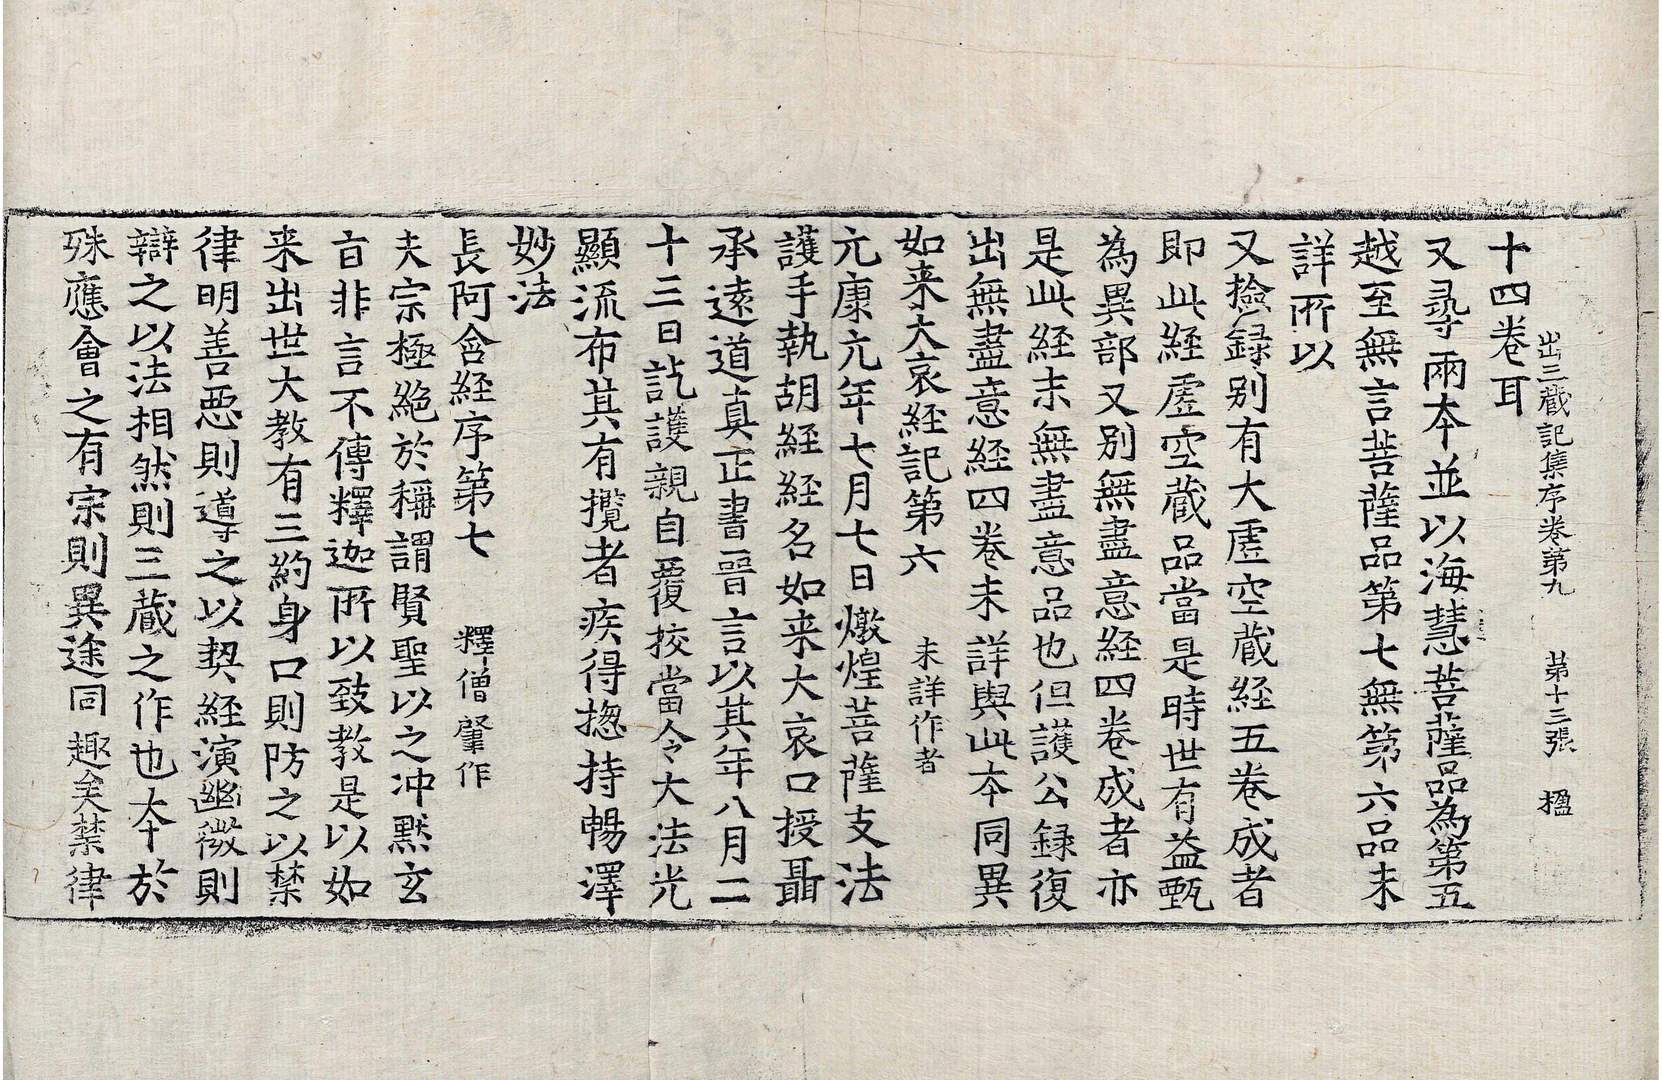 出三藏記集序卷第九　第十三張　楹
十四卷耳
又尋兩本並以海慧菩薩品為第五
越至無言菩薩品第七無第六品未
詳所以
又撿錄別有大虛空藏經五卷成者
即此經虛空藏品當是時世有益甄
為異部又別無盡意經四卷成者亦
是此經末無盡意品也但護公錄復
出無盡意經四卷未詳與此本同異
如来大哀經記第六　未詳作者
元康元年七月七日燉煌菩薩支法
護手執胡經經名如来大哀口授聶
承遠道真正書晉言以其年八月二
十三日訖護親自覆挍當令大法光
顯流布其有攬者疾得揔持暢澤
妙法
長阿含經序第七　釋僧肇作
夫宗極絕於稱謂賢聖以之沖默玄
旨非言不傳釋迦所以致教是以如
来出世大教有三約身口則防之以禁
律明善惡則導之以契經演幽微則
辯之以法相然則三藏之作也本於
殊應會之有宗則異途同趣矣禁律